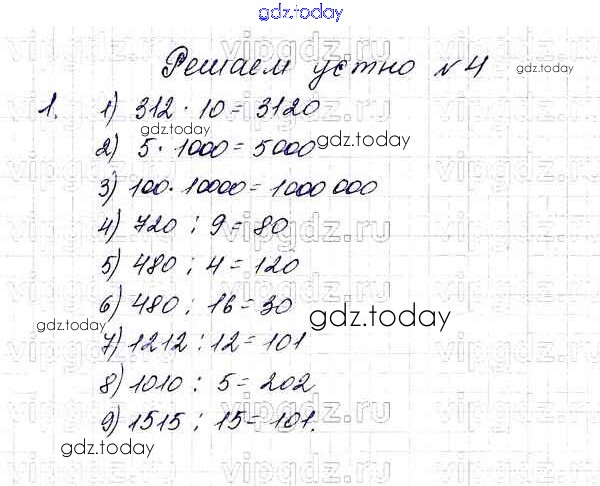 gdz.today
Решаем устно №4
gdz.today
1. 1) 312 · 10 = 3120
gdz.today
2) 5 · 1000 = 5000
gdz.today
3) 100 · 10000 = 1000 000
4) 720 : 9 = 80
vipgdz.ru
gdz.today
5) 480 : 4 = 120
6) 480 : 16 = 30
gdz.today
gdz.today
7) 1212 : 12 = 101
vipgdz.ru
8) 1010 : 5 = 202
9) 1515 : 15 = 101.
vipgdz.ru
gdz.today
vipgdz.ru